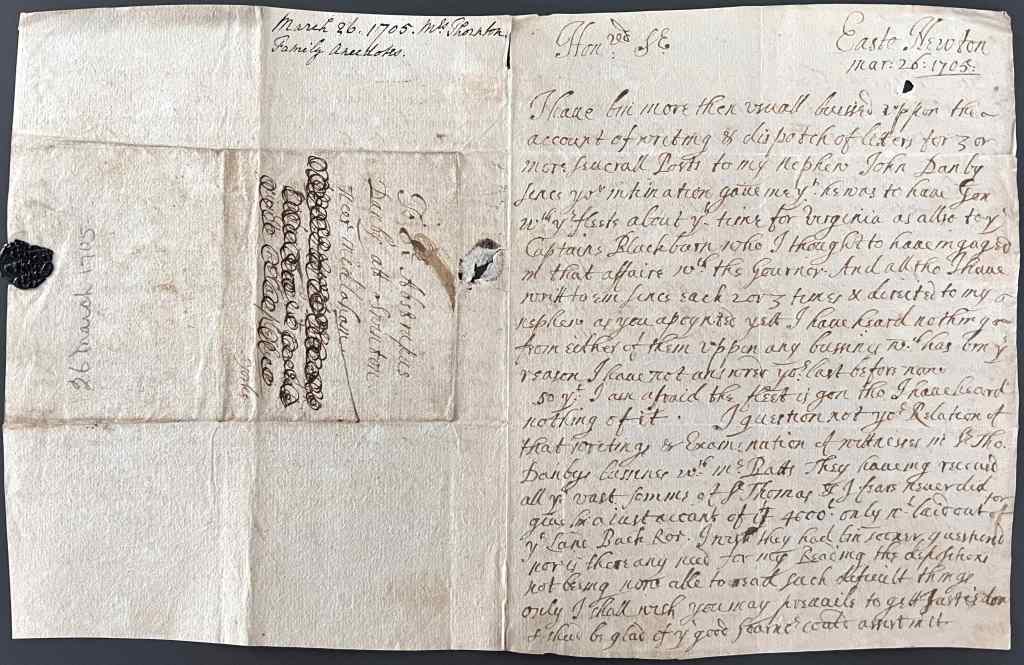 March 26. 1705. Mrs Thornton.
Family Anecdotes.
26 March 1705
To Sr Abstrupus
Danby att
neer
yorks
Honred Sr
East Newton
mar: 26: 1705:
I haue bin more then vsuall bussied vppon the
account of writing & dispatch of letters for 3 or
more seuerall Posts to my nephew John Danby
sence yor intimation gaue me yt he was to haue gon
wth ye fleets about ys time for Virginia as allso to ye
Captaine Blackburn who I thought to haue ingaged
in that affaire wth the Gouernor. And all tho I haue
writt to em sence each 2 or 3 times & directed to my
nephew as you apoynted yett I haue heard nothing
from either of them vppon any bussines wch has bin ye
reason I haue not answer yor last before now
so yt I am afraid the fleet is gon tho I haue heard
nothing of it. I question not yor Relation of
that writing & Examination of witneses in Sr Tho.
Danbys bussines wth mr Batts They haueing receiued
all ye vast somms of Sr Thomas & I feare neuer did
giue him a iust account of it 4000l only wt laid out of for
ye Lane Back Ror. I wish they had bin sooner questiond
nor is there any need for my Reading the depositions
not being now able to read such difficult things
only I shall wish you may preuaile to gett Justis don
& shall be glad if ye good could assist in it